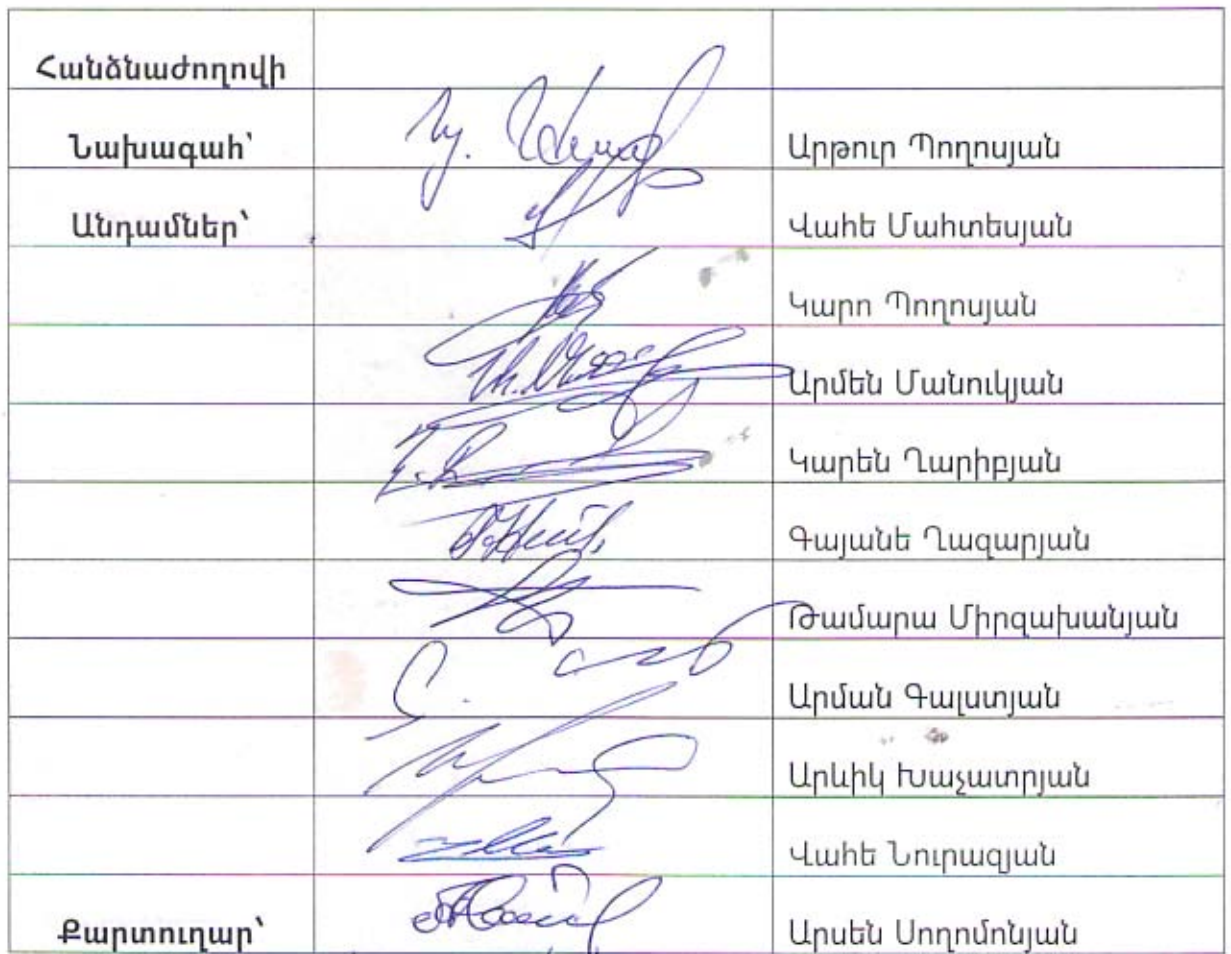 Հանձնաժողովի
Նախագահ՝ Արթուր Պողոսյան
Անդամներ՝ Վահե Մահտեսյան
Կարո Պողոսյան
Արմեն Մանուկյան
Կարեն Ղարիբյան
Գայանե Ղազարյան
Թամարա Միրզախանյան
Արման Գալստյան
Արևիկ Խաչատրյան
Վահե Նուրազյան
Քարտուղար՝ Արսեն Սողոմոնյան